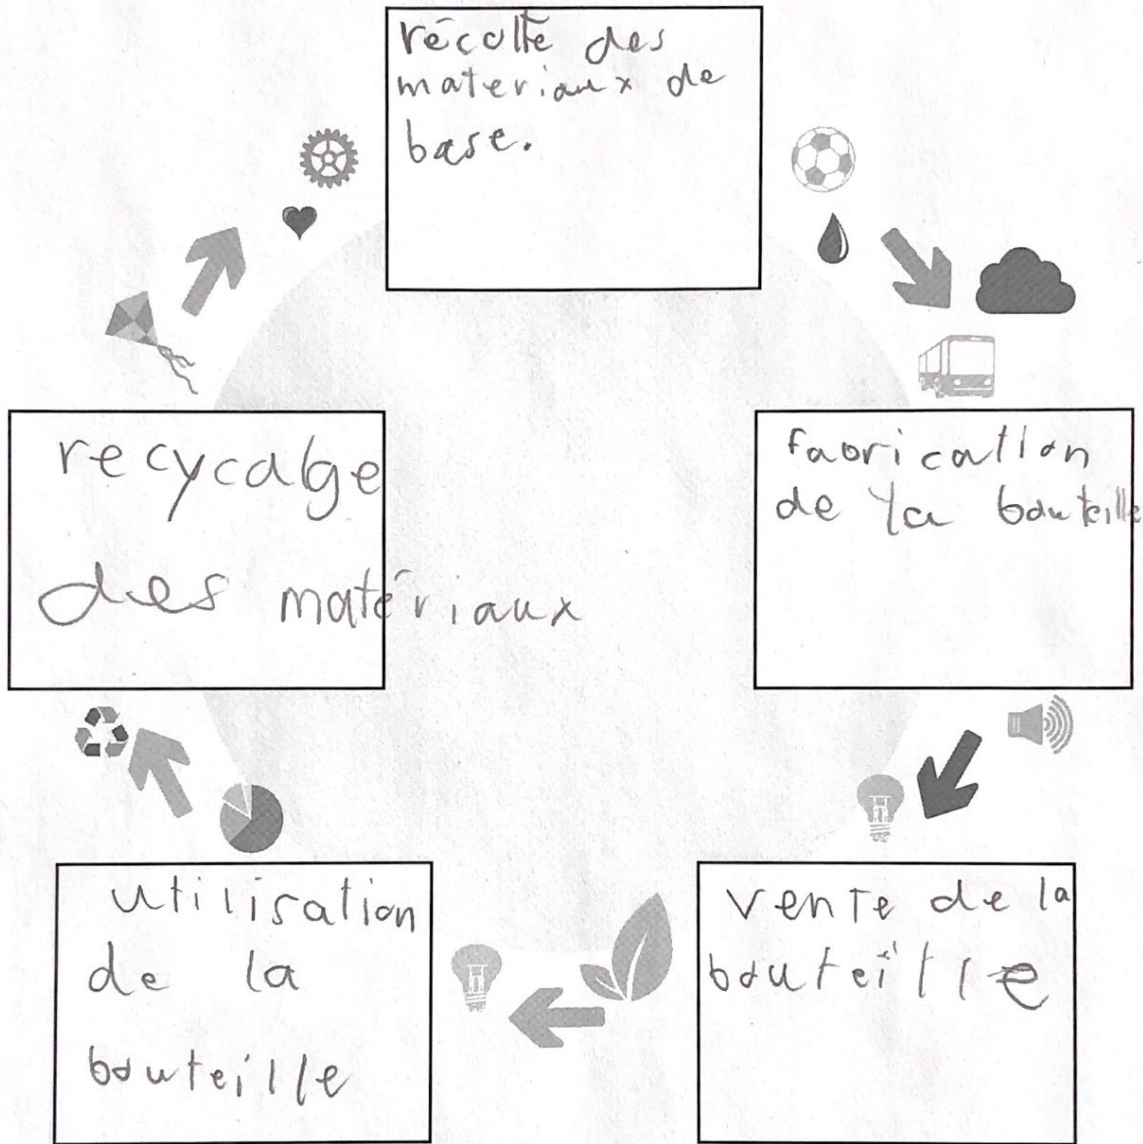 récolte des
materiaux de
base.
fabrication
de la bouteille
vente de la
bouteille
utilisation
de la
bouteille
recycalge
des matériaux